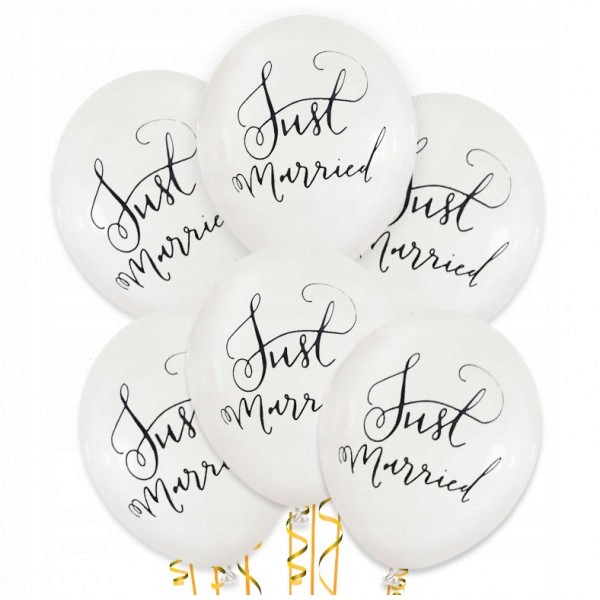 Just
Married
Just
Marrie
Just
Married
Just
Marr
Just
Marri
Just
Married